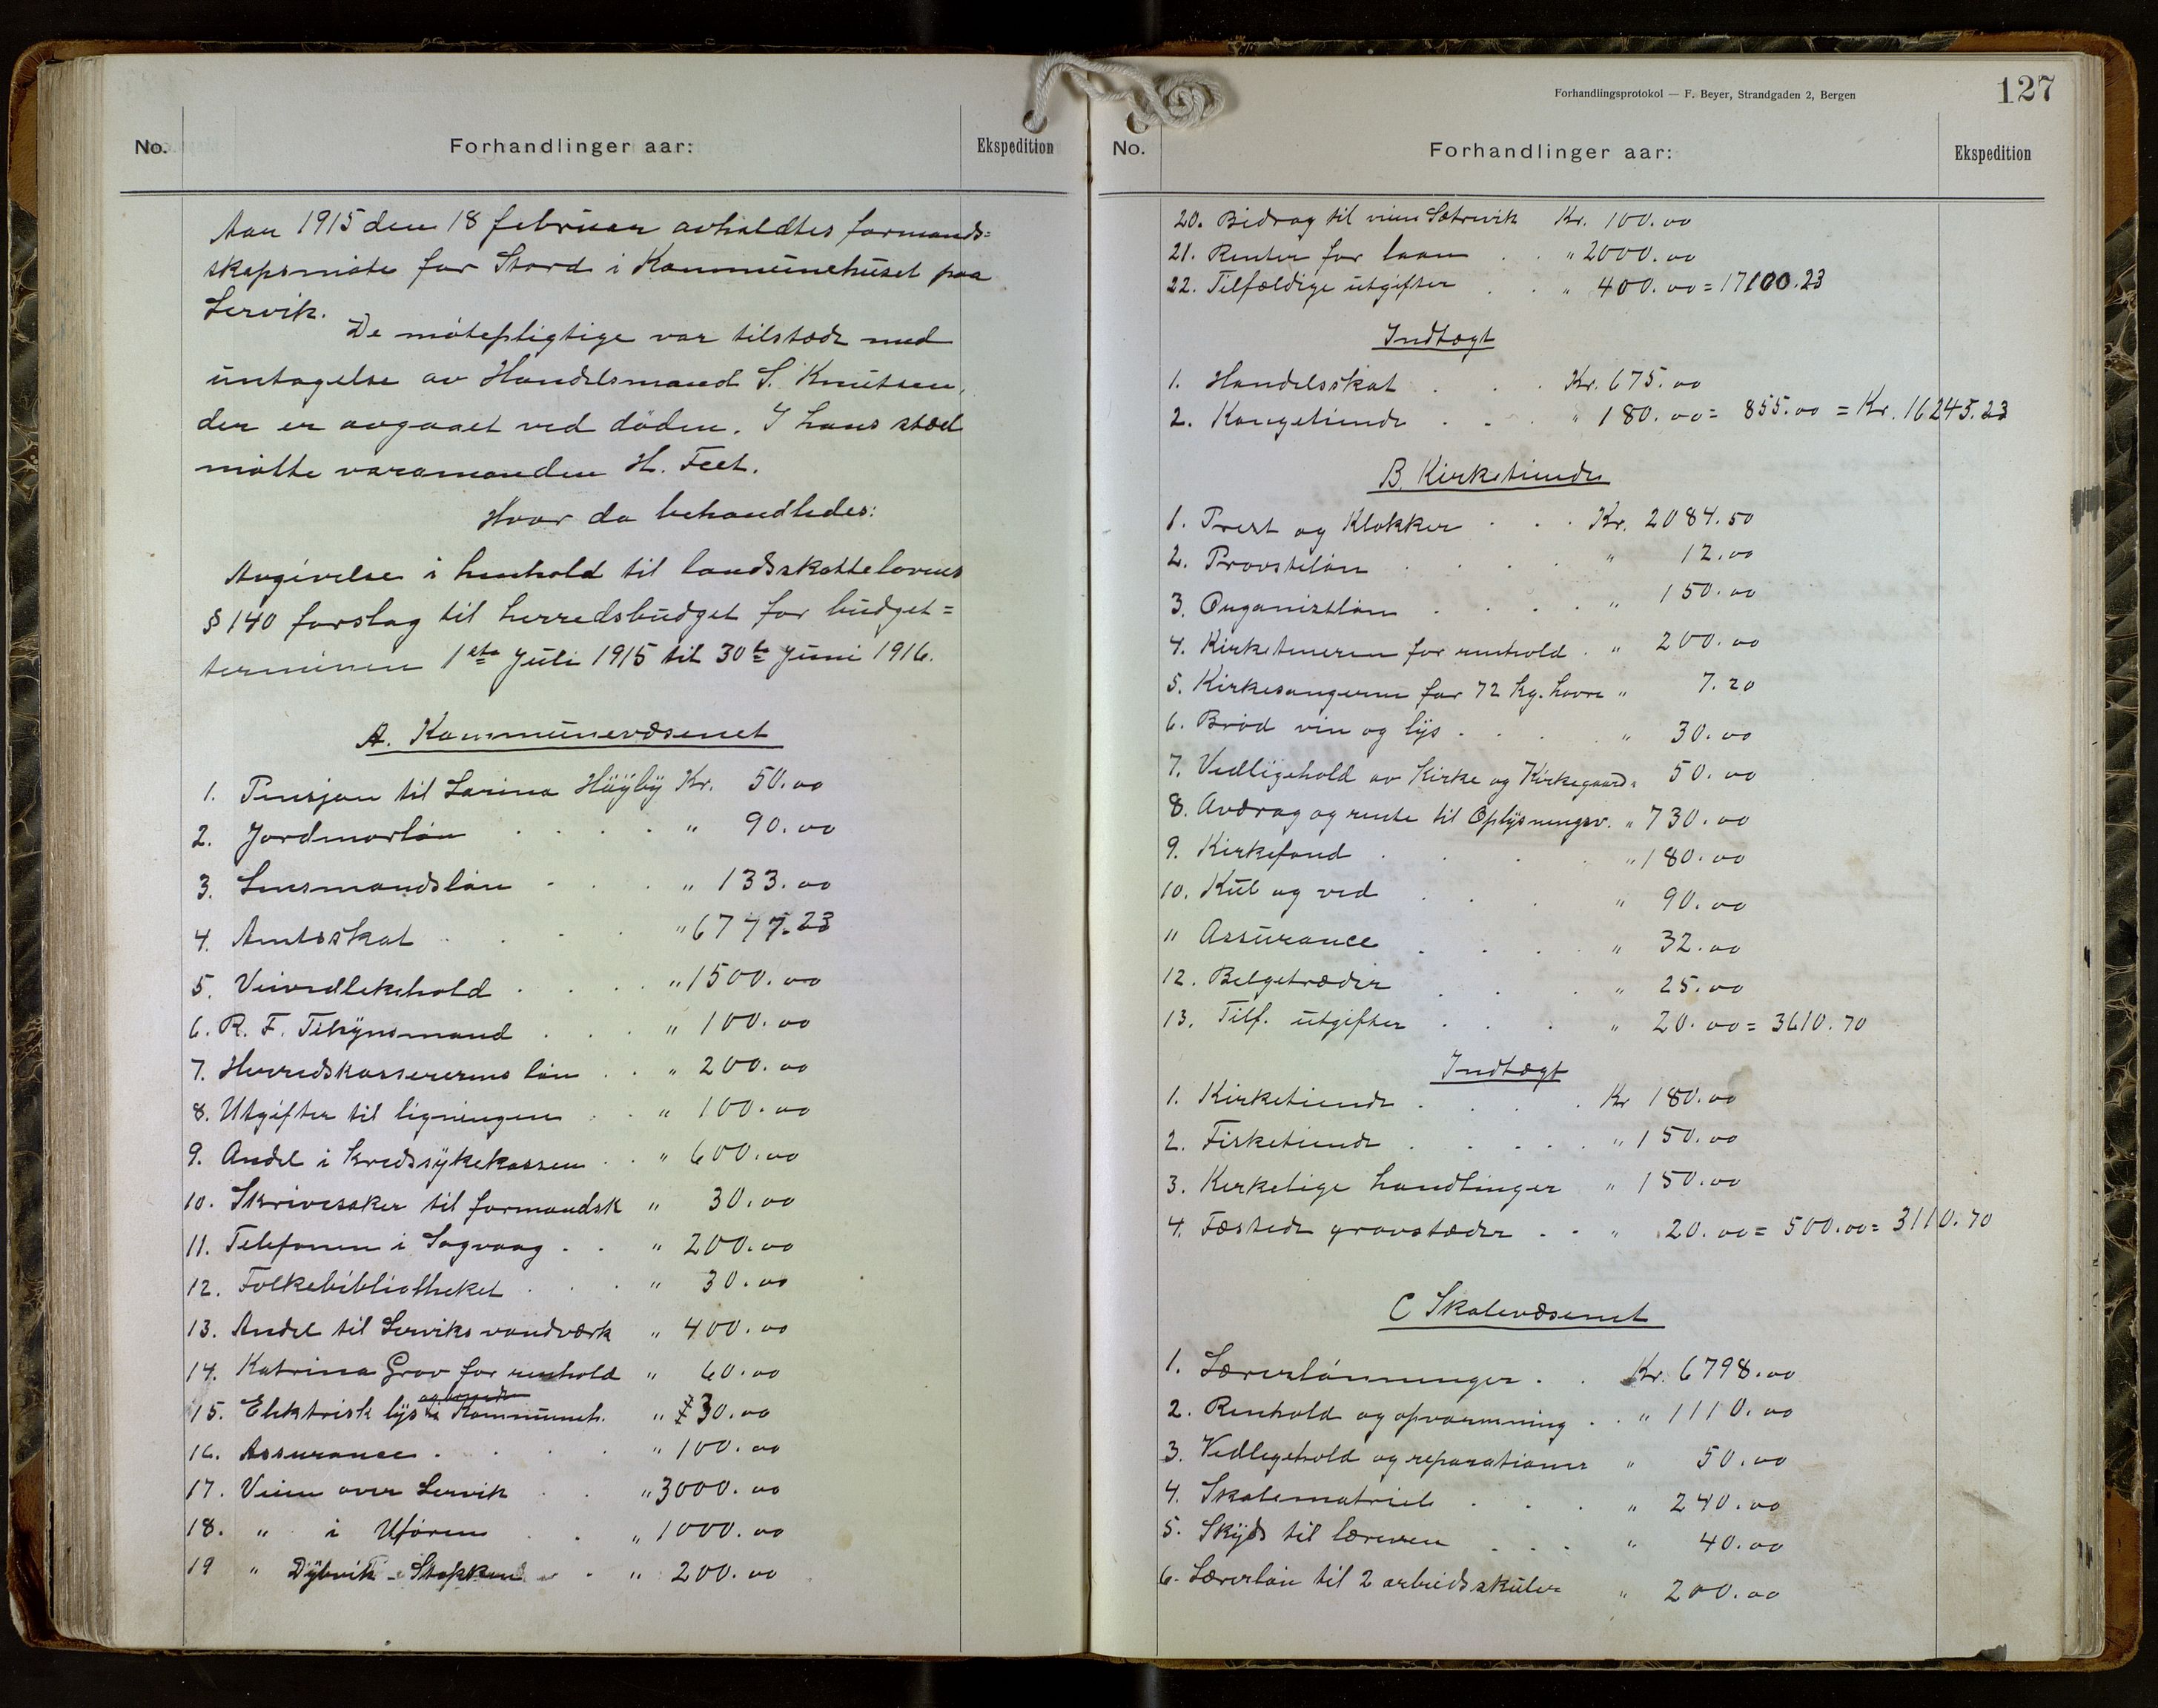 No.
Forhandlinger aar:
Ekspedition
Aar 1915 den 18 februar avholdtes formands=
skapsmøte for Stord i Kommunehuset paa
Lervik.
De møtepligtige var tilstæde med
untagelse av Handelsmand S. Knutsen,
der er avgaaet ved døden. I hans sted
møtte varamanden H. Feet.
Hvor da behandledes:
Avgivelse i henhold til landsskattelovens
§ 140 forslag til herredsbudget for budget=
terminen 1ste Juli 1915 til 30te Juni 1916.
A. Kommunevæsenet
1. Pensjon til Larina Høyby Kr. 50.00
2. Jordmorløn . . . . " 90.00
3. Lensmandsløn . . . " 133.00
4. Amtsskat . . . . " 6747.23
5. Veivedlikehold . . . . " 1500.00
6. R. F. Tislynsmand . . " 100.00
7. Herredskassererens løn . . " 200.00
8. Utgifter til ligningen . . " 100.00
9. Andel i Kredssykekassen . . " 600.00
10. Skrivesaker til formandsk " 30.00
11. Telefonen i Sagvaag . . " 200.00
12. Folkebibliotheket . . . " 30.00
13. Andel til Lerviks vandværk " 400.00
14. Katrina Grov for renhold " 60.00
15. Elektrisk lys i Kommuneh. " 30.00
16. Assurance . . . . " 100.00
17. Veien over Lervik . . " 3000.00
18. " i Uføren . . " 1000.00
19 " Dybvik - Stokken . " 200.00
Forhandlingsprotokol — F. Beyer, Strandgaden 2, Bergen
127
No.
Forhandlinger aar:
Ekspedition
20. Bidrag til veien Sætrevik Kr. 100.00
21. Renter for laan . . " 2000.00
22. Tilfældige utgifter . . " 400.00 = 17100.23
Indtægt
1. Handelsskat . . . Kr. 675.00
2. Kongetiende . . . " 180.00 = 855.00 = Kr. 16245.23
B. Kirketiende
1. Prest og Klokker . . . Kr. 2084.50
2. Provstiløn . . . . " 12.00
3. Organistløn . . . . " 150.00
4. Kirketjeneren for renhold . " 200.00
5. Kirkesangeren for 72 kg. havre " 7.20
6. Brød vin og lys . . . " 30.00
7. Vedligehold av Kirke og Kirkegaard " 50.00
8. Avdrag og rente til Oplysningsv. " 730.00
9. Kirkefond . . . . " 180.00
10. Kul og ved . . . " 90.00
11 Assurance . . . " 32.00
12. Belgetræder . . . " 25.00
13. Tilf. utgifter . . . " 20.00 = 3610.70
Indtægt
1. Kirketiende . . . . Kr 180.00
2. Fisketiende . . . . . " 150.00
3. Kirkelige handlinger " 150.00
4. Fæstede gravstæder . . " 20.00 = 500.00 = 3110.70
C Skolevæsenet
1. Lærerlønninger . . Kr. 6798.00
2. Renhold og opvarmning . . " 1110.00
3. Vedligehold og reparationer " 50.00
4. Skolematriel . . . " 240.00
5. Skyds til læreren . . . " 40.00
6. Lærerløn til 2 arbeidsskuler " 200.00